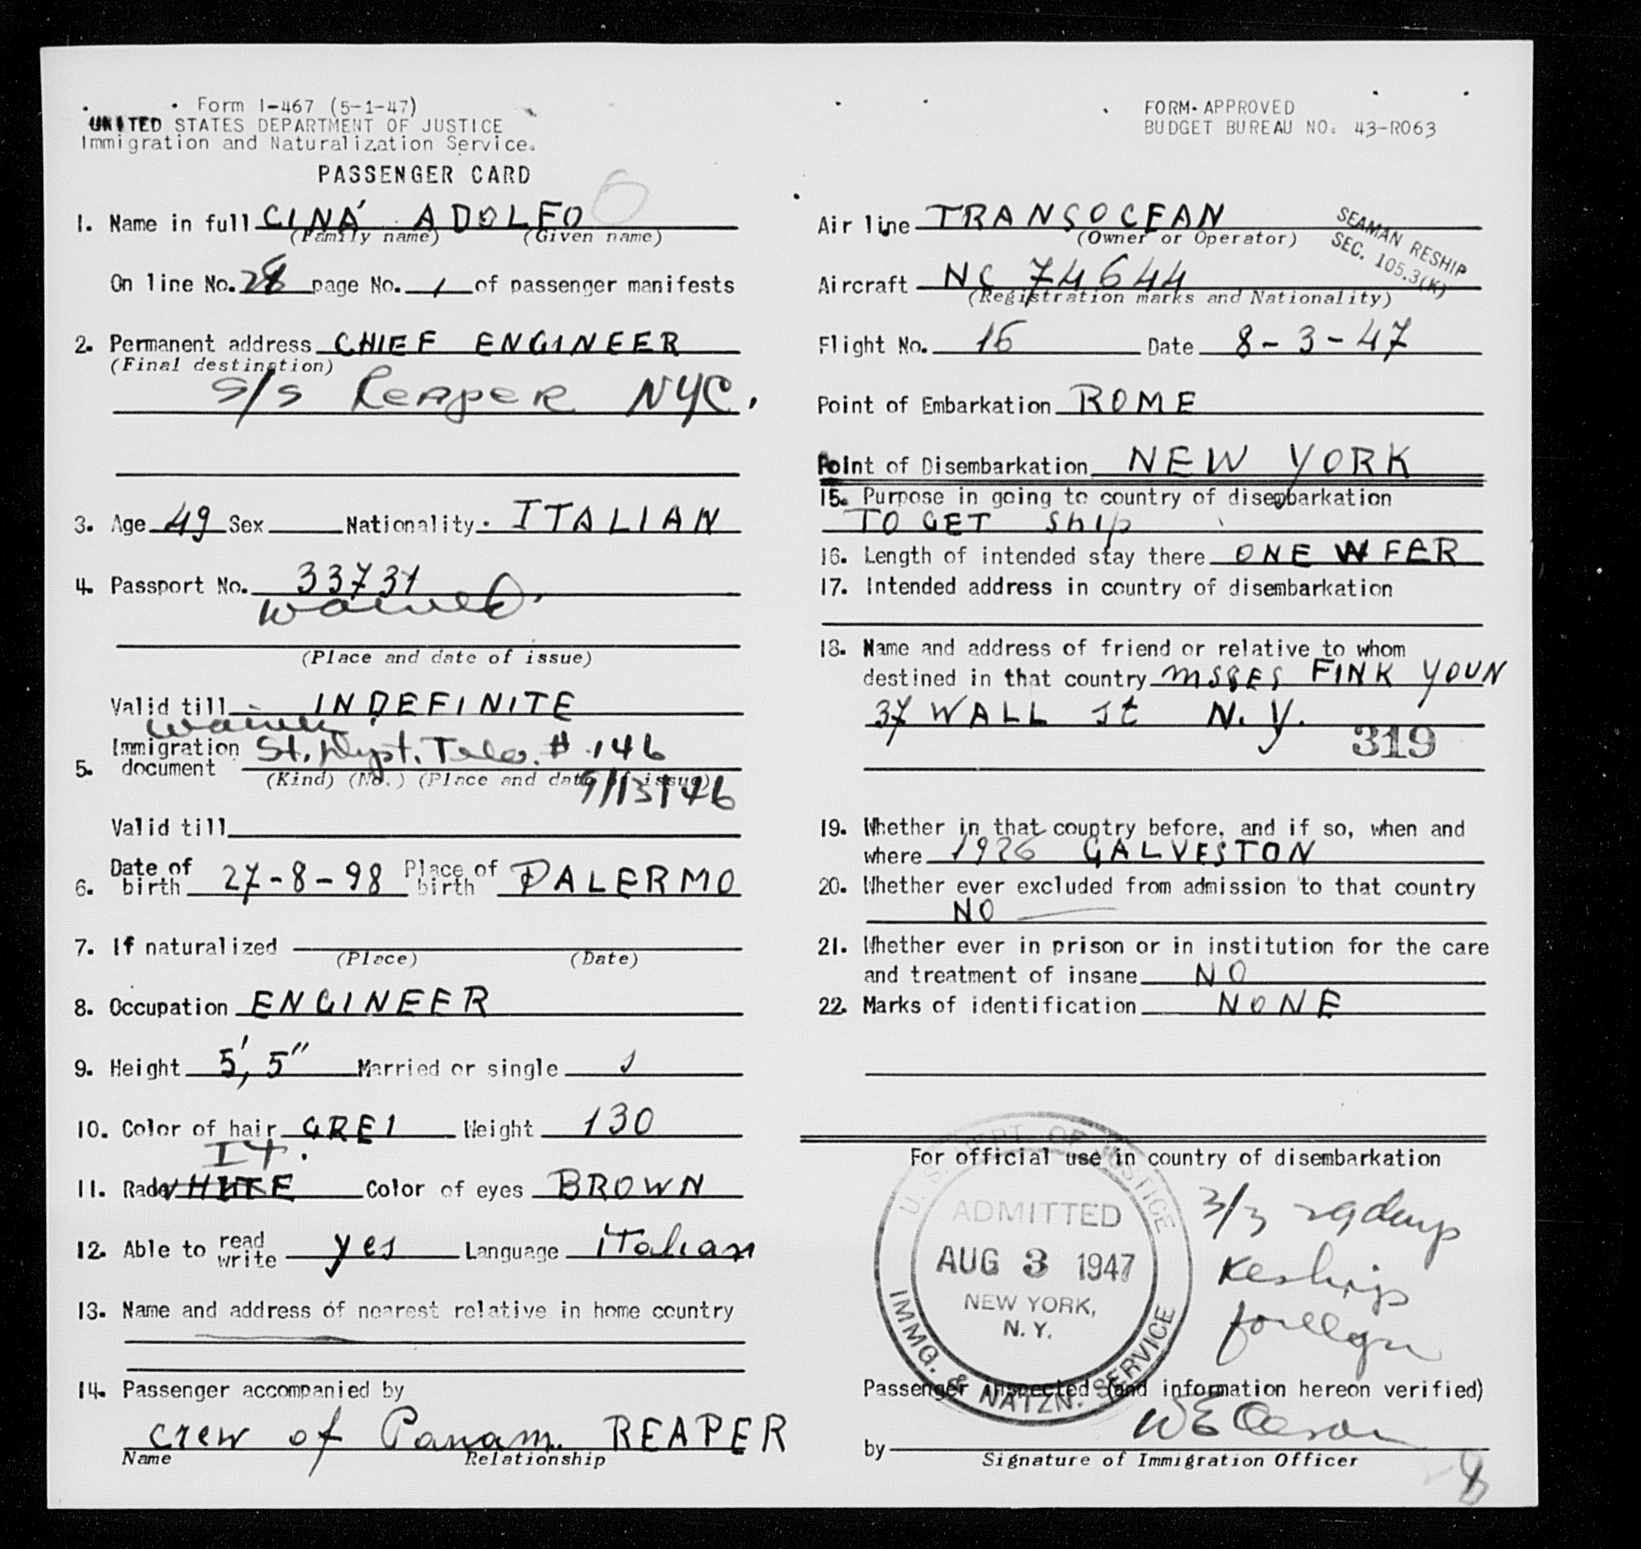 Form I-467 (5-1-47)
UNITED STATES DEPARTMENT OF JUSTICE
Immigration and Naturalization Service.
PASSENGER CARD
1. Name in full CINÁ ADOLFO
(Family name) (Given name)
On line No. 28 page No. 1 of passenger manifests
2. Permanent address CHIEF ENGINEER
(Final destination)
S/S Reaper NYC.
3. Age 49 Sex Nationality. ITALIAN
4. Passport No. 33731
waived.
(Place and date of issue)
Valid till INDEFINITE
waived
5. Immigration document St. Dept. Tele. # 146
(Kind) (No.) (Place and date of issue)
9/13/46
Valid till
6. Date of birth 27-8-98 Place of birth PALERMO
7. If naturalized
(Place) (Date)
8. Occupation ENGINEER
9. Height 5', 5" Married or single s
10. Color of hair GREI Weight 130
It.
11. Race WHITE Color of eyes BROWN
12. Able to read write yes Language italian
13. Name and address of nearest relative in home country
14. Passenger accompanied by
crew of Panam. REAPER
Name Relationship
FORM APPROVED
BUDGET BUREAU NO. 43-R063
Air line TRANSOCEAN
(Owner or Operator)
SEAMAN RESHIP
SEC. 105.3(K)
Aircraft NC 74644
(Registration marks and Nationality)
Flight No. 16 Date 8-3-47
Point of Embarkation ROME
Point of Disembarkation NEW YORK
15. Purpose in going to country of disembarkation
TO GET Ship
16. Length of intended stay there ONE WEER
17. Intended address in country of disembarkation
18. Name and address of friend or relative to whom
destined in that country MSSES FINK YOUN
37 WALL St N.Y.
319
19. Whether in that country before, and if so, when and
where 1926 GALVESTON
20. Whether ever excluded from admission to that country
NO
21. Whether ever in prison or in institution for the care
and treatment of insane NO
22. Marks of identification NONE
For official use in country of disembarkation
U. S. DEPT. OF JUSTICE
ADMITTED
AUG 3 1947
NEW YORK,
N. Y.
IMMG. & NATZN. SERVICE
3/3 29 days
Reship
foreign
Passenger inspected (and information hereon verified)
by
Signature of Immigration Officer
8